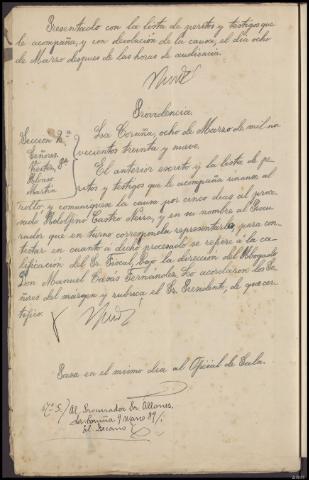 Presentado con la lista de peritos y testigos que
le acompaña, y con devolución de la causa, el día ocho
de Marzo despues de las horas de audiencia.
Providencia.
Sección 2ª
Señores
Pte
Alonso
Martin
La Coruña, ocho de Marzo de mil no-
vecientos treinta y nueve.
El anterior escrito y la lista de pe-
ritos y testigos que le acompaña únanse al
rollo, y comuníquese la causa por cinco dias al proce-
sado Rodolfino Castro Neira, y en su nombre al Procu-
rador que en turno corresponda representarle, para con-
testar en cuanto a dicho procesado se refiere a la ca-
lificación del Sr. Fiscal, bajo la dirección del Abogado
Don Manuel Casás Fernández. Lo acordaron los Se-
ñores del margen y rubrica el Sr. Presidente, de que cer-
tifico.
Pasa en el mismo dia al Oficial de Sala.
Al Procurador Sr. Allones.
La Coruña 9 marzo 39
El Decano